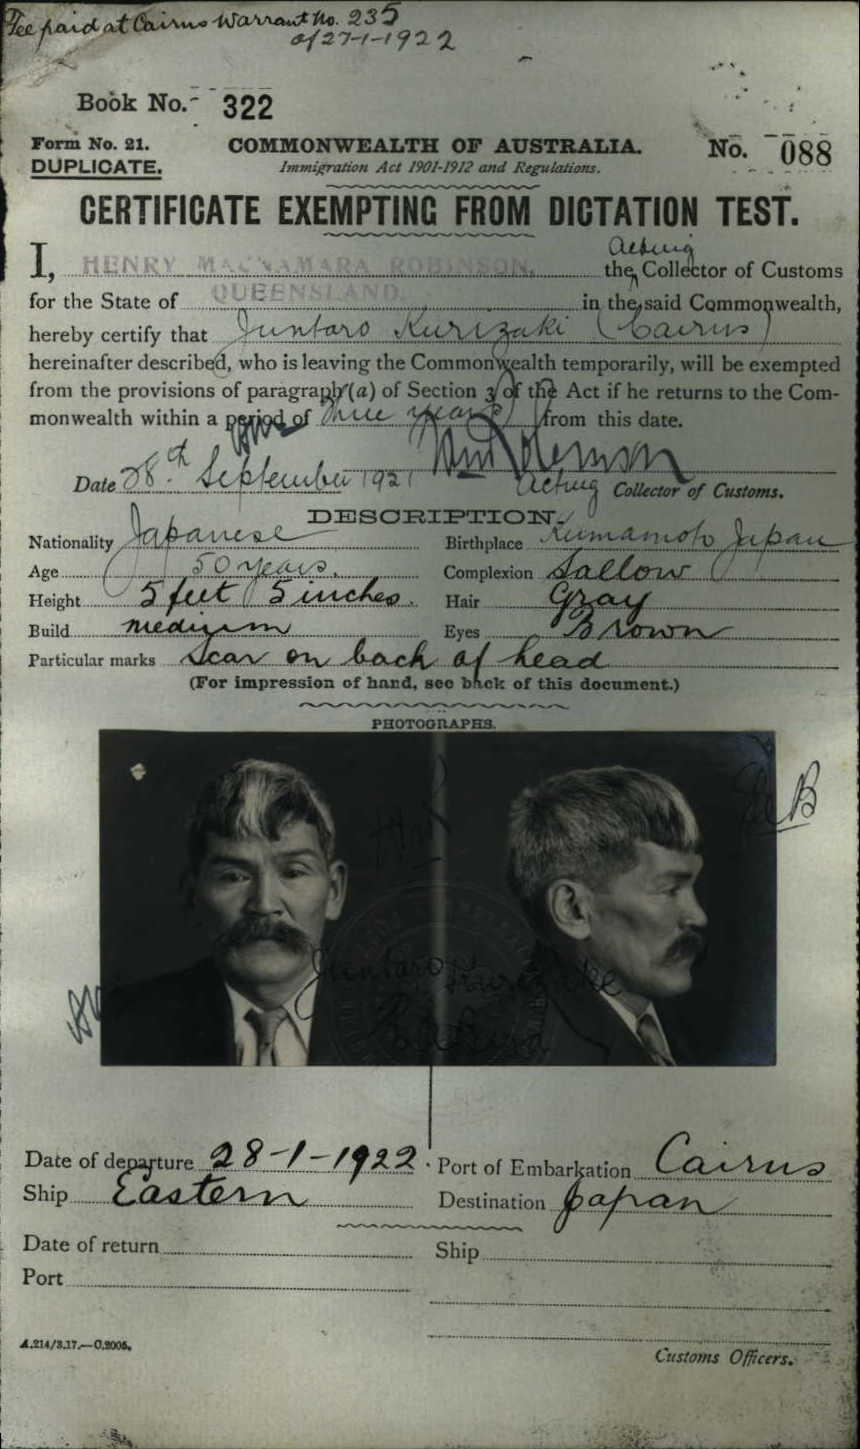 Fee paid at Cairns Warrant No. 235
of 27-1-1922
Book No. 322
Form No. 21.
DUPLICATE.
COMMONWEALTH OF AUSTRALIA.
Immigration Act 1901-1912 and Regulations.
No. 088
CERTIFICATE EXEMPTING FROM DICTATION TEST.
I, HENRY MACNAMARA ROBINSON, the Acting Collector of Customs
for the State of QUEENSLAND. in the said Commonwealth,
hereby certify that Juntaro Kurizaki (Cairns)
hereinafter described, who is leaving the Commonwealth temporarily, will be exempted
from the provisions of paragraph (a) of Section 3 of the Act if he returns to the Com-
monwealth within a period of three years from this date.
Date 28th September 1921
Acting Collector of Customs.
DESCRIPTION.
Nationality Japanese Birthplace Kumamoto Japan
Age 50 years. Complexion Sallow
Height 5 feet 5 inches. Hair Gray
Build medium Eyes Brown
Particular marks Scar on back of head
(For impression of hand, see back of this document.)
PHOTOGRAPHS.
Juntaro
Date of departure 28-1-1922. Port of Embarkation Cairns
Ship Eastern Destination Japan
Date of return Ship
Port
A.214/3.17.—C.2005.
Customs Officers.